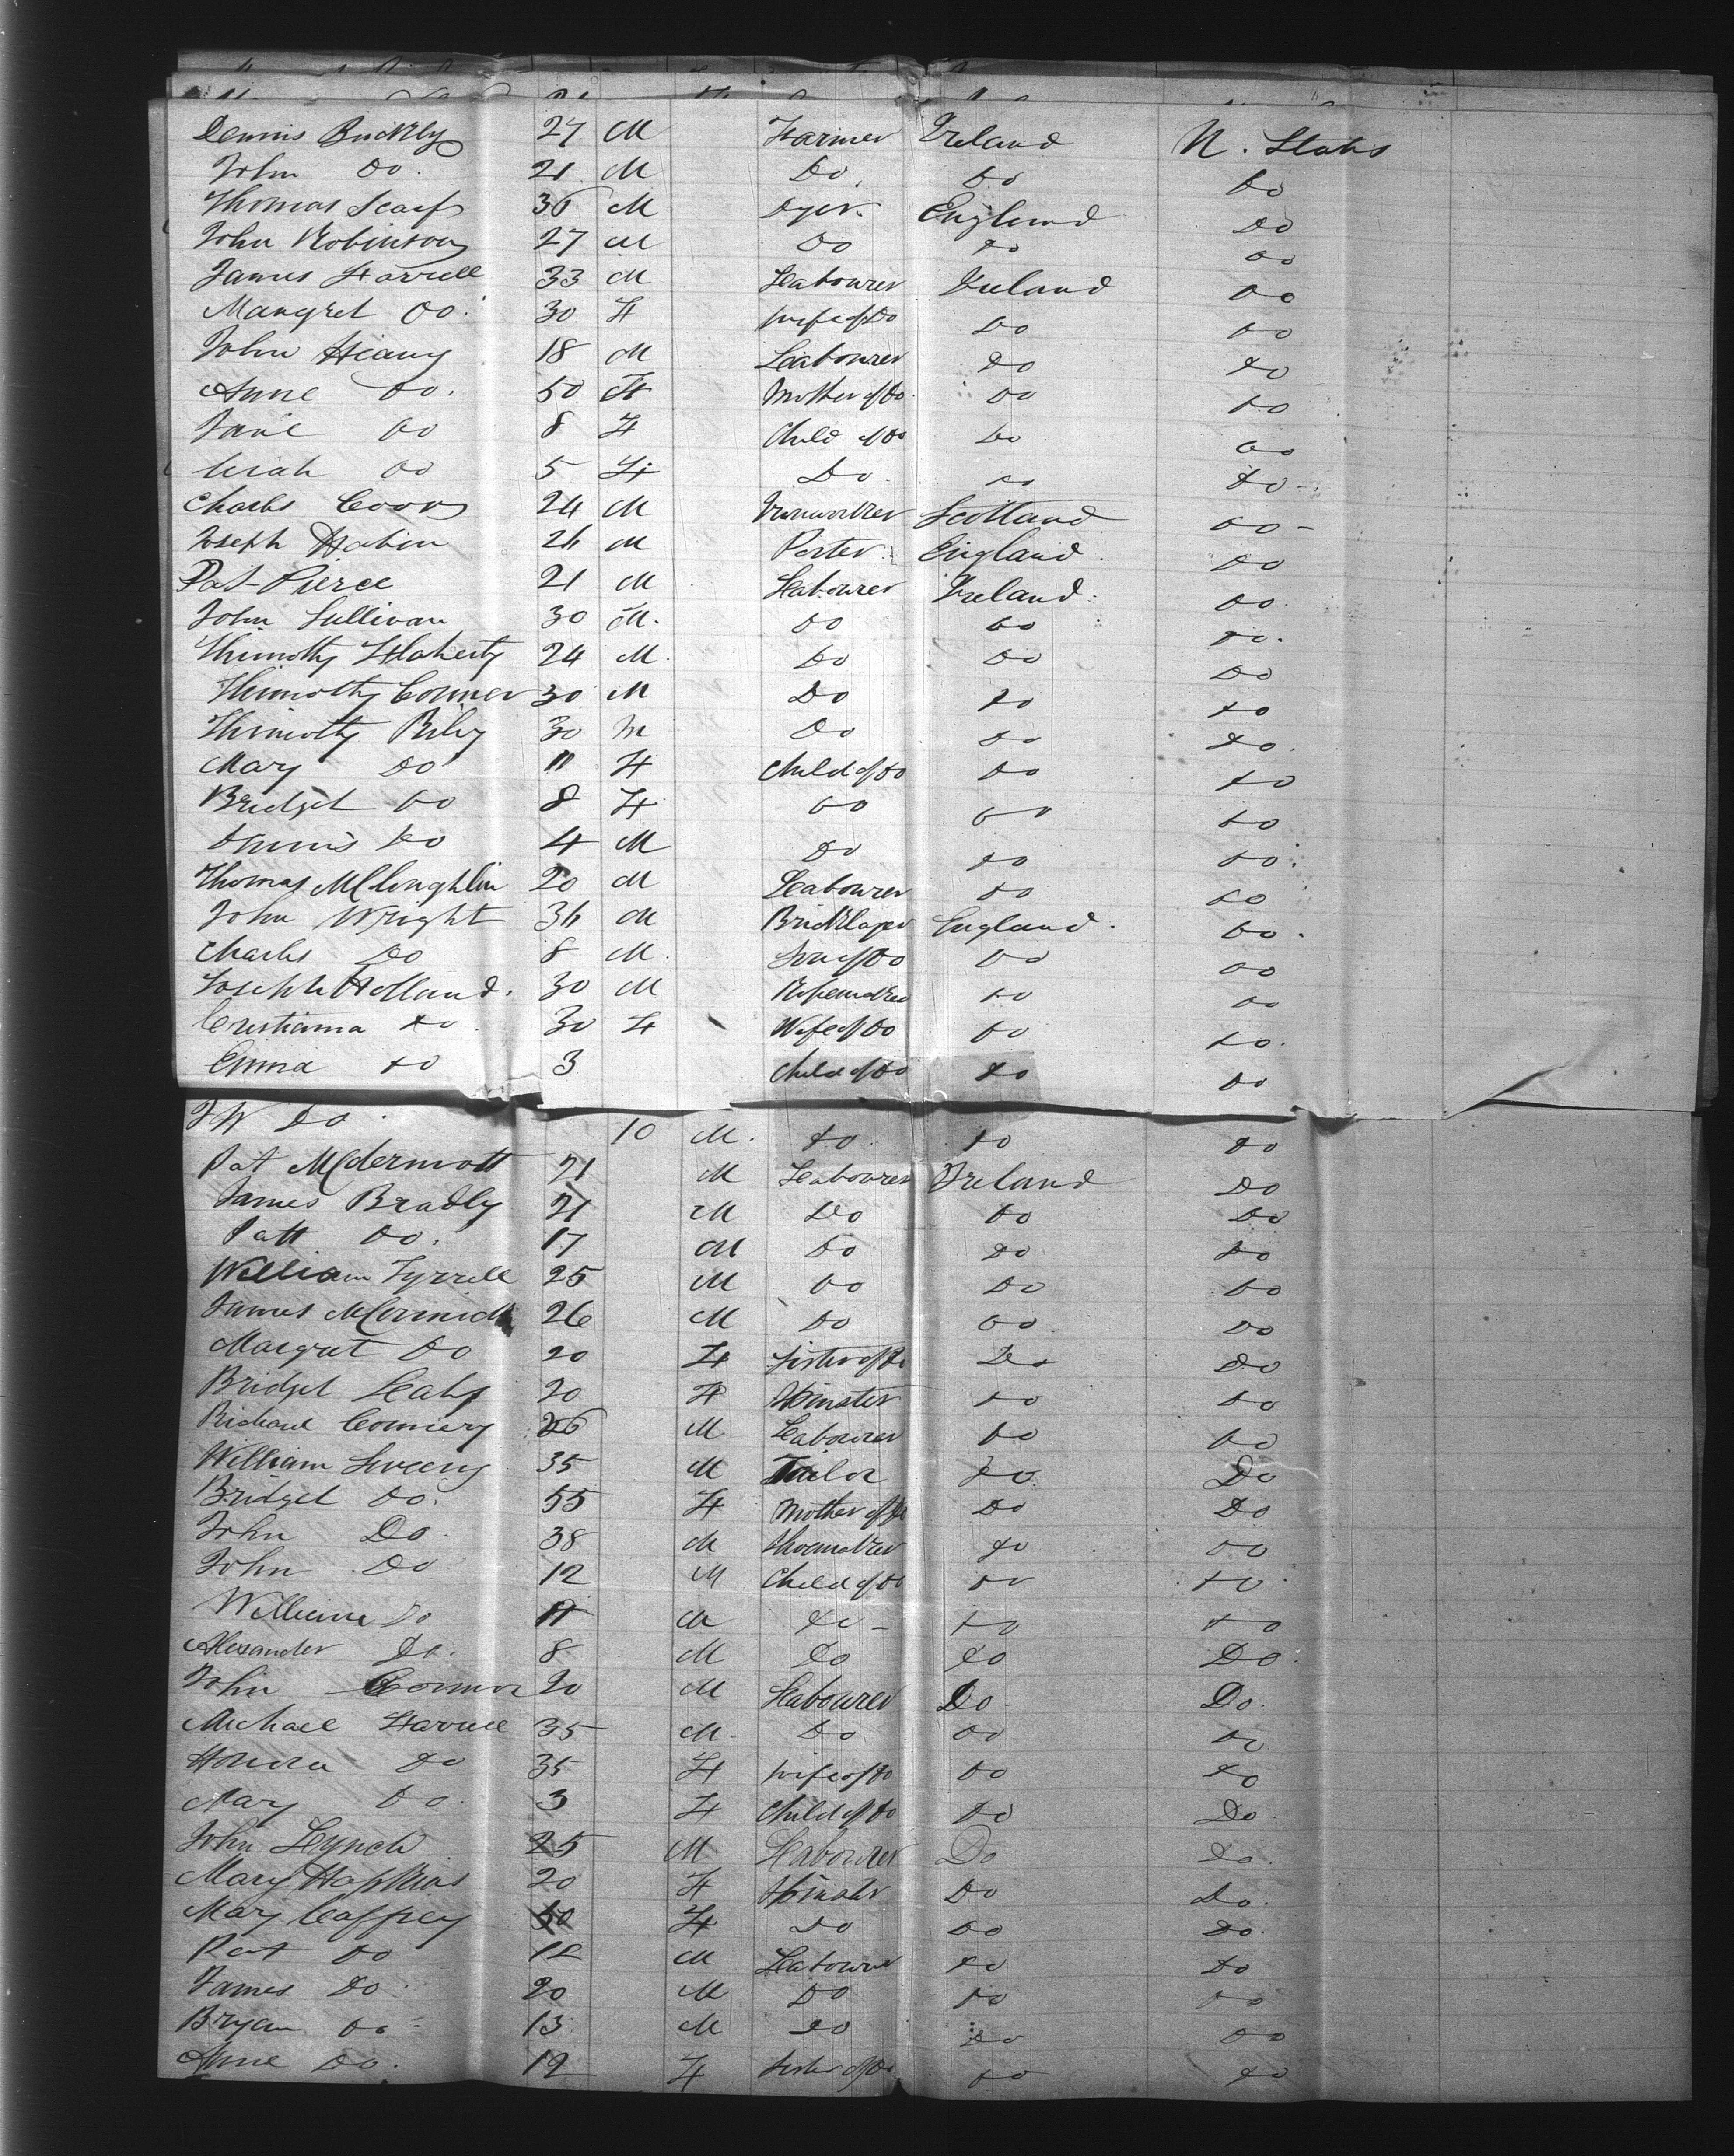 Dennis Buckly 27 M Farmer Ireland U. States
John Do. 21 M Do. Do Do
Thomas Scarf 36 M Dyer. England Do
John Robinson 27 M Do Do Do
James Farrell 33 M Labourer Ireland Do
Margret Do. 30 F wife of Do Do Do
John Heany 18 M Labourer Do Do
Anne Do. 50 F Mother of Do. Do Do
Jane Do 8 F Child of Do Do Do
Do 5 F Do Do Do
Charles 24 M Ironworker Scotland Do
Joseph 26 M Porter England Do
Pat Pierce 21 M Labourer Ireland Do
John Sullivan 30 M. Do Do Do.
Thimothy Flaherty 24 M. Do Do Do
Thimothy Conner 30 M Do Do Do
Thimothy Riley 30 M Do Do Do.
Mary Do 11 F Child of Do Do Do
Bridget Do 8 F Do Do Do
Dennis Do 4 M Do Do Do
Thomas McLoughlin 20 M Labourer Do Do
John Wright 36 M Bricklayer England. Do.
Charles Do 8 M. Son of Do Do Do
Joseph Holland. 30 M Ropemaker Do Do
Cristianna Do 30 F Wife of Do Do Do.
Emma Do 3 Child of Do Do Do
Do. 10 M. Do Do Do
Pat McDermott 21 M Labourer Ireland Do
James Bradly 21 M Do Do Do
Patt Do. 17 M Do Do Do
William Tyrrell 25 M Do Do Do
James 26 M Do Do Do
Margret Do 20 F Sister of Do Do Do
Bridget Leahy 20 F Spinster Do Do
Richard Connery 26 M Labourer Do Do
William Sweeny 35 M Tailor Do Do
Bridget Do. 55 F Mother of Do Do Do
John Do 38 M Shoemaker Do Do
John Do 12 M Child of Do Do Do
William Do 11 M Do Do Do
Alexander Do. 8 M Do Do Do.
John Connor 20 M Labourer Do Do.
Michael Farrell 35 M. Do Do Do
Honora Do 35 F wife of Do Do Do
Mary Do. 3 F Child of Do Do Do
John Lynch 25 M Labourer Do Do.
Mary Hapkins 20 F Spinster Do Do.
Mary Caffrey 50 F Do Do Do.
Pat Do M Labourer Do Do
James Do 20 M Do Do Do
Bryan Do 13 M Do Do Do
Anne Do. 12 F Sister of Do Do Do